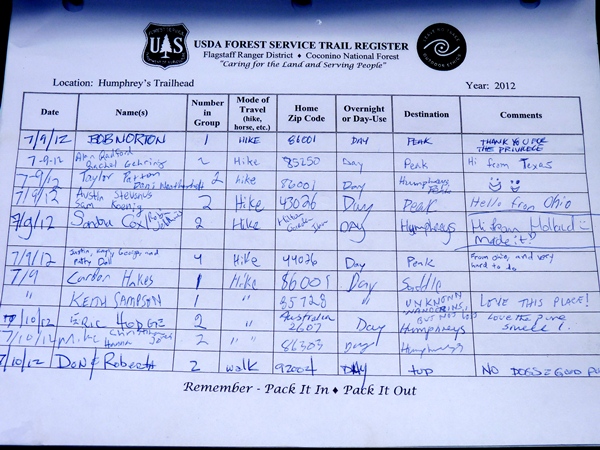 FOREST SERVICE
U S
USDA FOREST SERVICE TRAIL REGISTER
Flagstaff Ranger District ♦ Coconino National Forest
"Caring for the Land and Serving People"
Location: Humphrey's Trailhead Year: 2012
Date Name(s) Number in Group Mode of Travel (hike, horse, etc.) Home Zip Code Overnight or Day-Use Destination Comments
7/9/12 BOB NORTON 1 HIKE 86001 DAY PEAK THANK YOU FOR THE PRIVILEGE
7-9-12 2 Hike 85250 Day Peak Hi from Texas
7-9/12 Taylor Patton 2 hike 86001 Day Humphreys Peak
7/9/12 Austin Stevenus Sam Koenig 2 Hike 43026 Day Peak Hello from Ohio
7/9/12 Cox 2 Hike DAY Humphreys Hi from Holland Made it!
7/9/12 4 Hike 44026 Day Peak From ohio, and very hard to do
7/9 Carter Hakes 1 Hike 86001 Day Saddle
" KEITH SAMPSON 1 " 85728 " UNKNOWN WANDERING, BUT NOT LOST LOVE THIS PLACE!
7/10/12 ERIC HODGE 2 " Australia 2607 Day Humphreys Love the pine smell!
7/10/12 Mike 2 " " 86303 Day Humphreys
7/10/12 Don & Robecca 2 walk 92004 DAY tup NO DOGS = GOOD
Remember - Pack It In ♦ Pack It Out